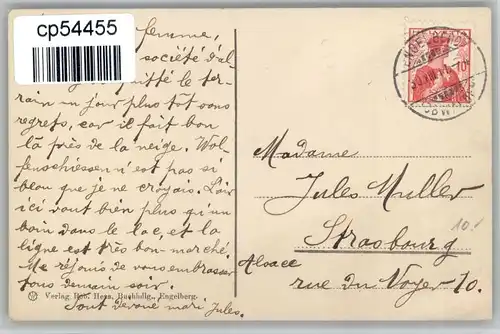 cp54455
femme,
société d'al-
quitté le ter-
rain un jour plus tôt sans
regrets, car il fait bon
là près de la neige. Wol-
fenschiessen n'est pas si
beau que je ne croyais. L'air
ici vaut bien plus qu'un
bain dans le lac, et la
ligne est très bon-marché.
Me réjouis de vous embrasser
tous demain soir.
Tout dévoué mari Jules.
Verlag Rob. Hess, Buchhdlg., Engelberg.
Madame
Jules Muller
Strasbourg
Alsace
rue du Noyer 10.
10.-